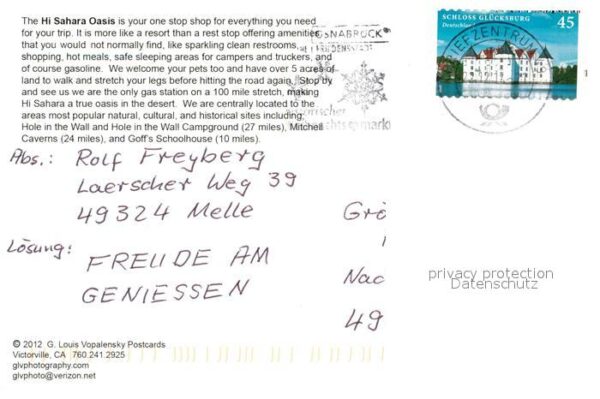 The Hi Sahara Oasis is your one stop shop for everything you need
for your trip. It is more like a resort than a rest stop offering amenities
that you would not normally find, like sparkling clean restrooms,
shopping, hot meals, safe sleeping areas for campers and truckers, and
of course gasoline. We welcome your pets too and have over 5 acres of
land to walk and stretch your legs before hitting the road again. Stop by
and see us we are the only gas station on a 100 mile stretch, making
Hi Sahara a true oasis in the desert. We are centrally located to the
areas most popular natural, cultural, and historical sites including;
Hole in the Wall and Hole in the Wall Campground (27 miles), Mitchell
Caverns (24 miles), and Goff's Schoolhouse (10 miles).
OSNABRÜCK
FRIEDENSSTADT
SCHLOSS GLÜCKSBURG 45
Deutschland
IEFZENTRUM
Abs.: Rolf Freyberg
Laerscher Weg 39
49324 Melle
Lösung: FREUDE AM
GENIESSEN
Grö
Nac
49
privacy protection
Datenschutz
© 2012 G. Louis Vopalensky Postcards
Victorville, CA 760.241.2925
glvphotography.com
glvphoto@verizon.net